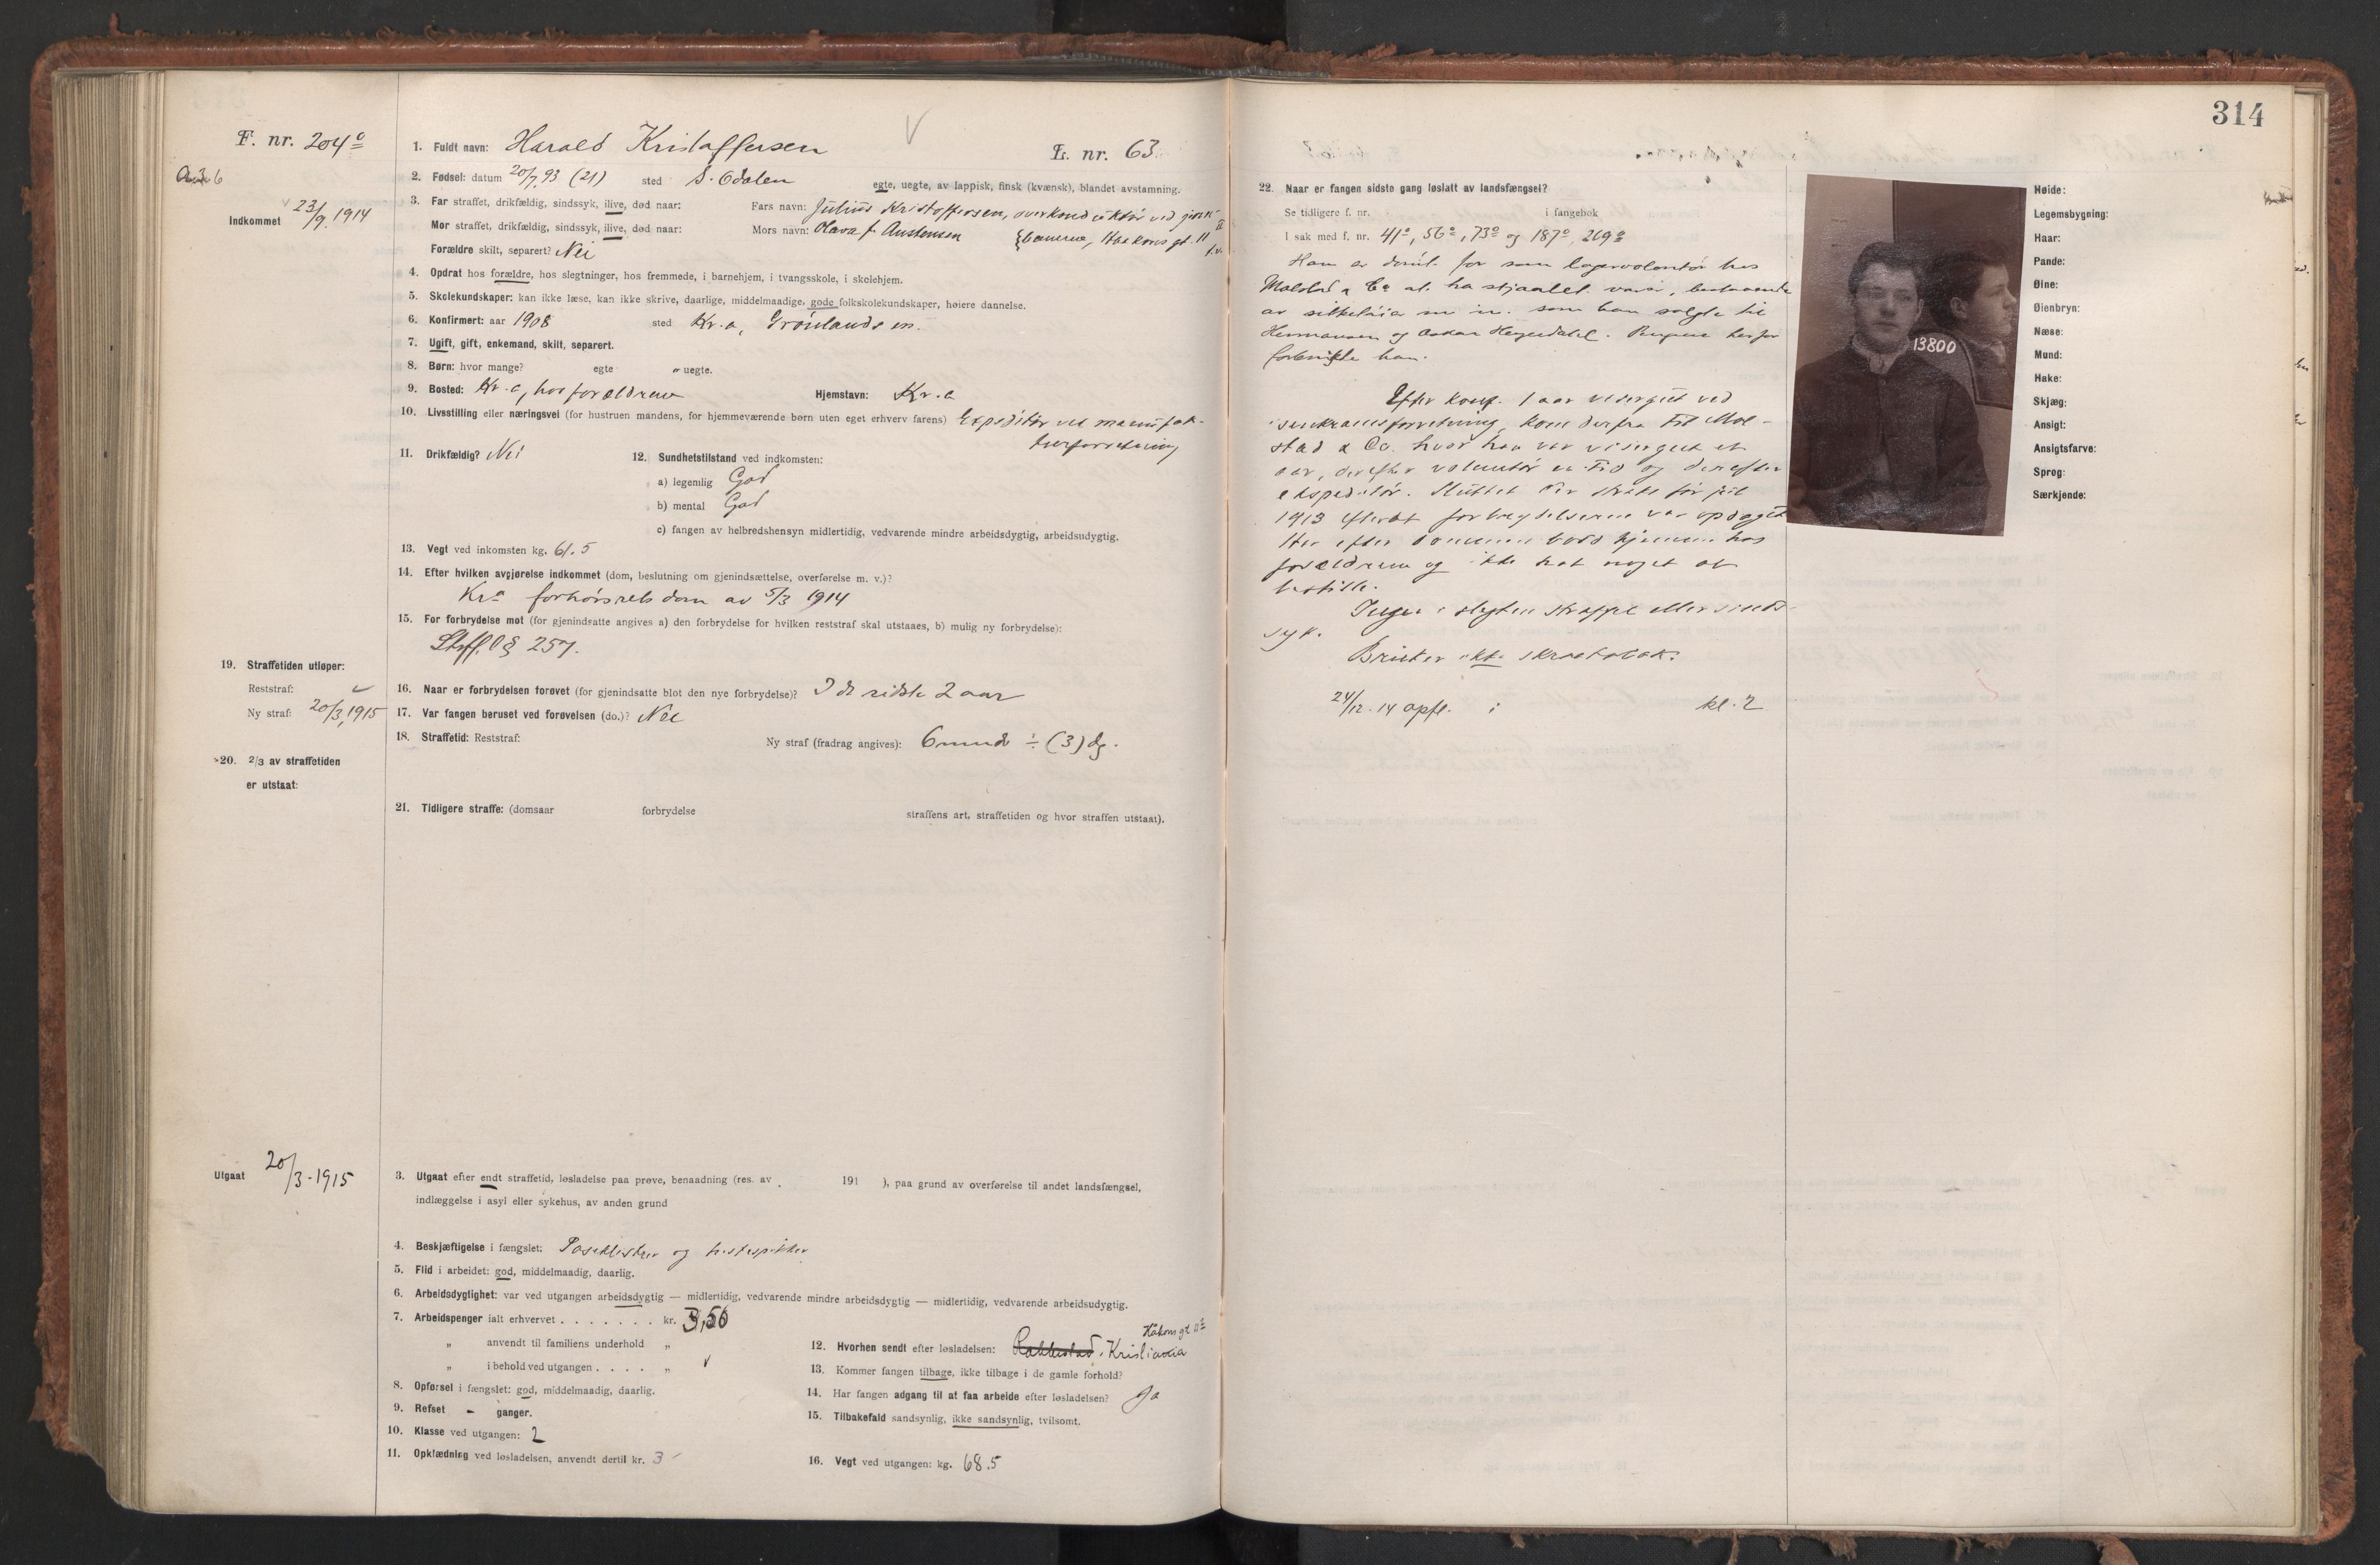 314
F. nr. 204º
1. Fuldt navn: Harald Kristoffersen
L. nr. 63
2. Fødsel: datum 20/7.93 (21) sted S. Odalen egte, uegte, av lappisk, finsk (kvænsk), blandet avstamning.
Indkommet 23/9.1914
3. Far straffet, drikfældig, sindssyk, ilive, død naar: Fars navn: Julius Kristoffersen, overkonduktør ved jern-
Mor straffet, drikfældig, sindssyk, ilive, død naar: Mors navn: Olava f. Austensen banerne, Haakons gt. 11
Forældre skilt, separert? Nei
4. Opdrat hos forældre, hos slegtninger, hos fremmede, i barnehjem, i tvangsskole, i skolehjem.
5. Skolekundskaper: kan ikke læse, kan ikke skrive, daarlige, middelmaadige, gode folkskolekundskaper, høiere dannelse.
6. Konfirmert: aar 1908 sted Kr.a, Grønlands m.
7. Ugift, gift, enkemand, skilt, separert.
8. Børn: hvor mange? egte uegte.
9. Bosted: Kr.a, hos forældrene Hjemstavn: Kr.a
10. Livsstilling eller næringsvei (for hustruen mandens, for hjemmeværende børn uten eget erhverv farens) Expeditør ved manufak-
turforretning
11. Drikfældig? Nei 12. Sundhetstilstand ved indkomsten:
a) legemlig God
b) mental God
c) fangen av helbredshensyn midlertidig, vedvarende mindre arbeidsdygtig, arbeidsudygtig.
13. Vegt ved inkomsten kg. 61.5
14. Efter hvilken avgjørelse indkommet (dom, beslutning om gjenindsættelse, overførelse m. v.)?
Kra forhørsrets dom av 5/3 1914
15. For forbrydelse mot (for gjenindsatte angives a) den forbrydelse for hvilken reststraf skal utstaaes, b) mulig ny forbrydelse):
Strfl. § 257.
19. Straffetiden utløper:
Reststraf:
Ny straf: 20/3,1915
16. Naar er forbrydelsen forøvet (for gjenindsatte blot den nye forbrydelse)? I de sidste 2 aar
17. Var fangen beruset ved forøvelsen (do.)? Nei
18. Straffetid: Reststraf: Ny straf (fradrag angives): 6 mndr ÷ (3) dg.
20. 2/3 av straffetiden
er utstaat:
21. Tidligere straffe: (domsaar forbrydelse straffens art, straffetiden og hvor straffen utstaat).
Utgaat 20/3-1915
3. Utgaat efter endt straffetid, løsladelse paa prøve, benaadning (res. av 191 ), paa grund av overførelse til andet landsfængsel,
indlæggelse i asyl eller sykehus, av anden grund
4. Beskjæftigelse i fængslet: Poseklistrer og
5. Flid i arbeidet: god, middelmaadig, daarlig.
6. Arbeidsdygtighet: var ved utgangen arbeidsdygtig — midlertidig, vedvarende mindre arbeidsdygtig — midlertidig, vedvarende arbeidsudygtig.
7. Arbeidspenger ialt erhvervet . . . . . . . kr. 3,50
" anvendt til familiens underhold "
" i behold ved utgangen . . . . "
8. Opførsel i fængslet: god, middelmaadig, daarlig.
9. Refset - ganger.
10. Klasse ved utgangen: 2
11. Opklædning ved løsladelsen, anvendt dertil kr. 3
12. Hvorhen sendt efter løsladelsen: Rakkestad. Kristiania Håkons gt 11
13. Kommer fangen tilbage, ikke tilbage i de gamle forhold?
14. Har fangen adgang til at faa arbeide efter løsladelsen? Ja
15. Tilbakefald sandsynlig, ikke sandsynlig, tvilsomt.
16. Vegt ved utgangen: kg. 68.5
22. Naar er fangen sidste gang løslatt av landsfængsel?
Se tidligere f. nr. i fangebok
I sak med f. nr. 41º, 56º, 73º og 187º, 269º
Han er dømt for som lagervolontør hos
Molstad & Co at ha stjaalet varer, bestaaende
av silketøier m. m. som han solgte til
Hermansen og Oskar Heyerdahl. Pengene herfor
forbrukte han.
Efter konf. 1 aar visergut ved
isenkramforretning, kom derfra til Mol-
stad & Co. hvor han var visergut et
aar, derefter volontør en tid og derefter
ekspeditør. Sluttet der straks før jul
1913 efterat forbrydelserne var opdaget
Har efter dommen bodd hjemme hos
forældrene og ikke hat noget at
bestille.
Ingen i slegten straffet eller sinds-
syk.
Bruker ikke skraatobak.
24/12-14 opfl. i kl. 2
13800
Høide:
Legemsbygning:
Haar:
Pande:
Øine:
Øienbryn:
Næse:
Mund:
Hake:
Skjæg:
Ansigt:
Ansigtsfarve:
Sprog:
Særkjende: